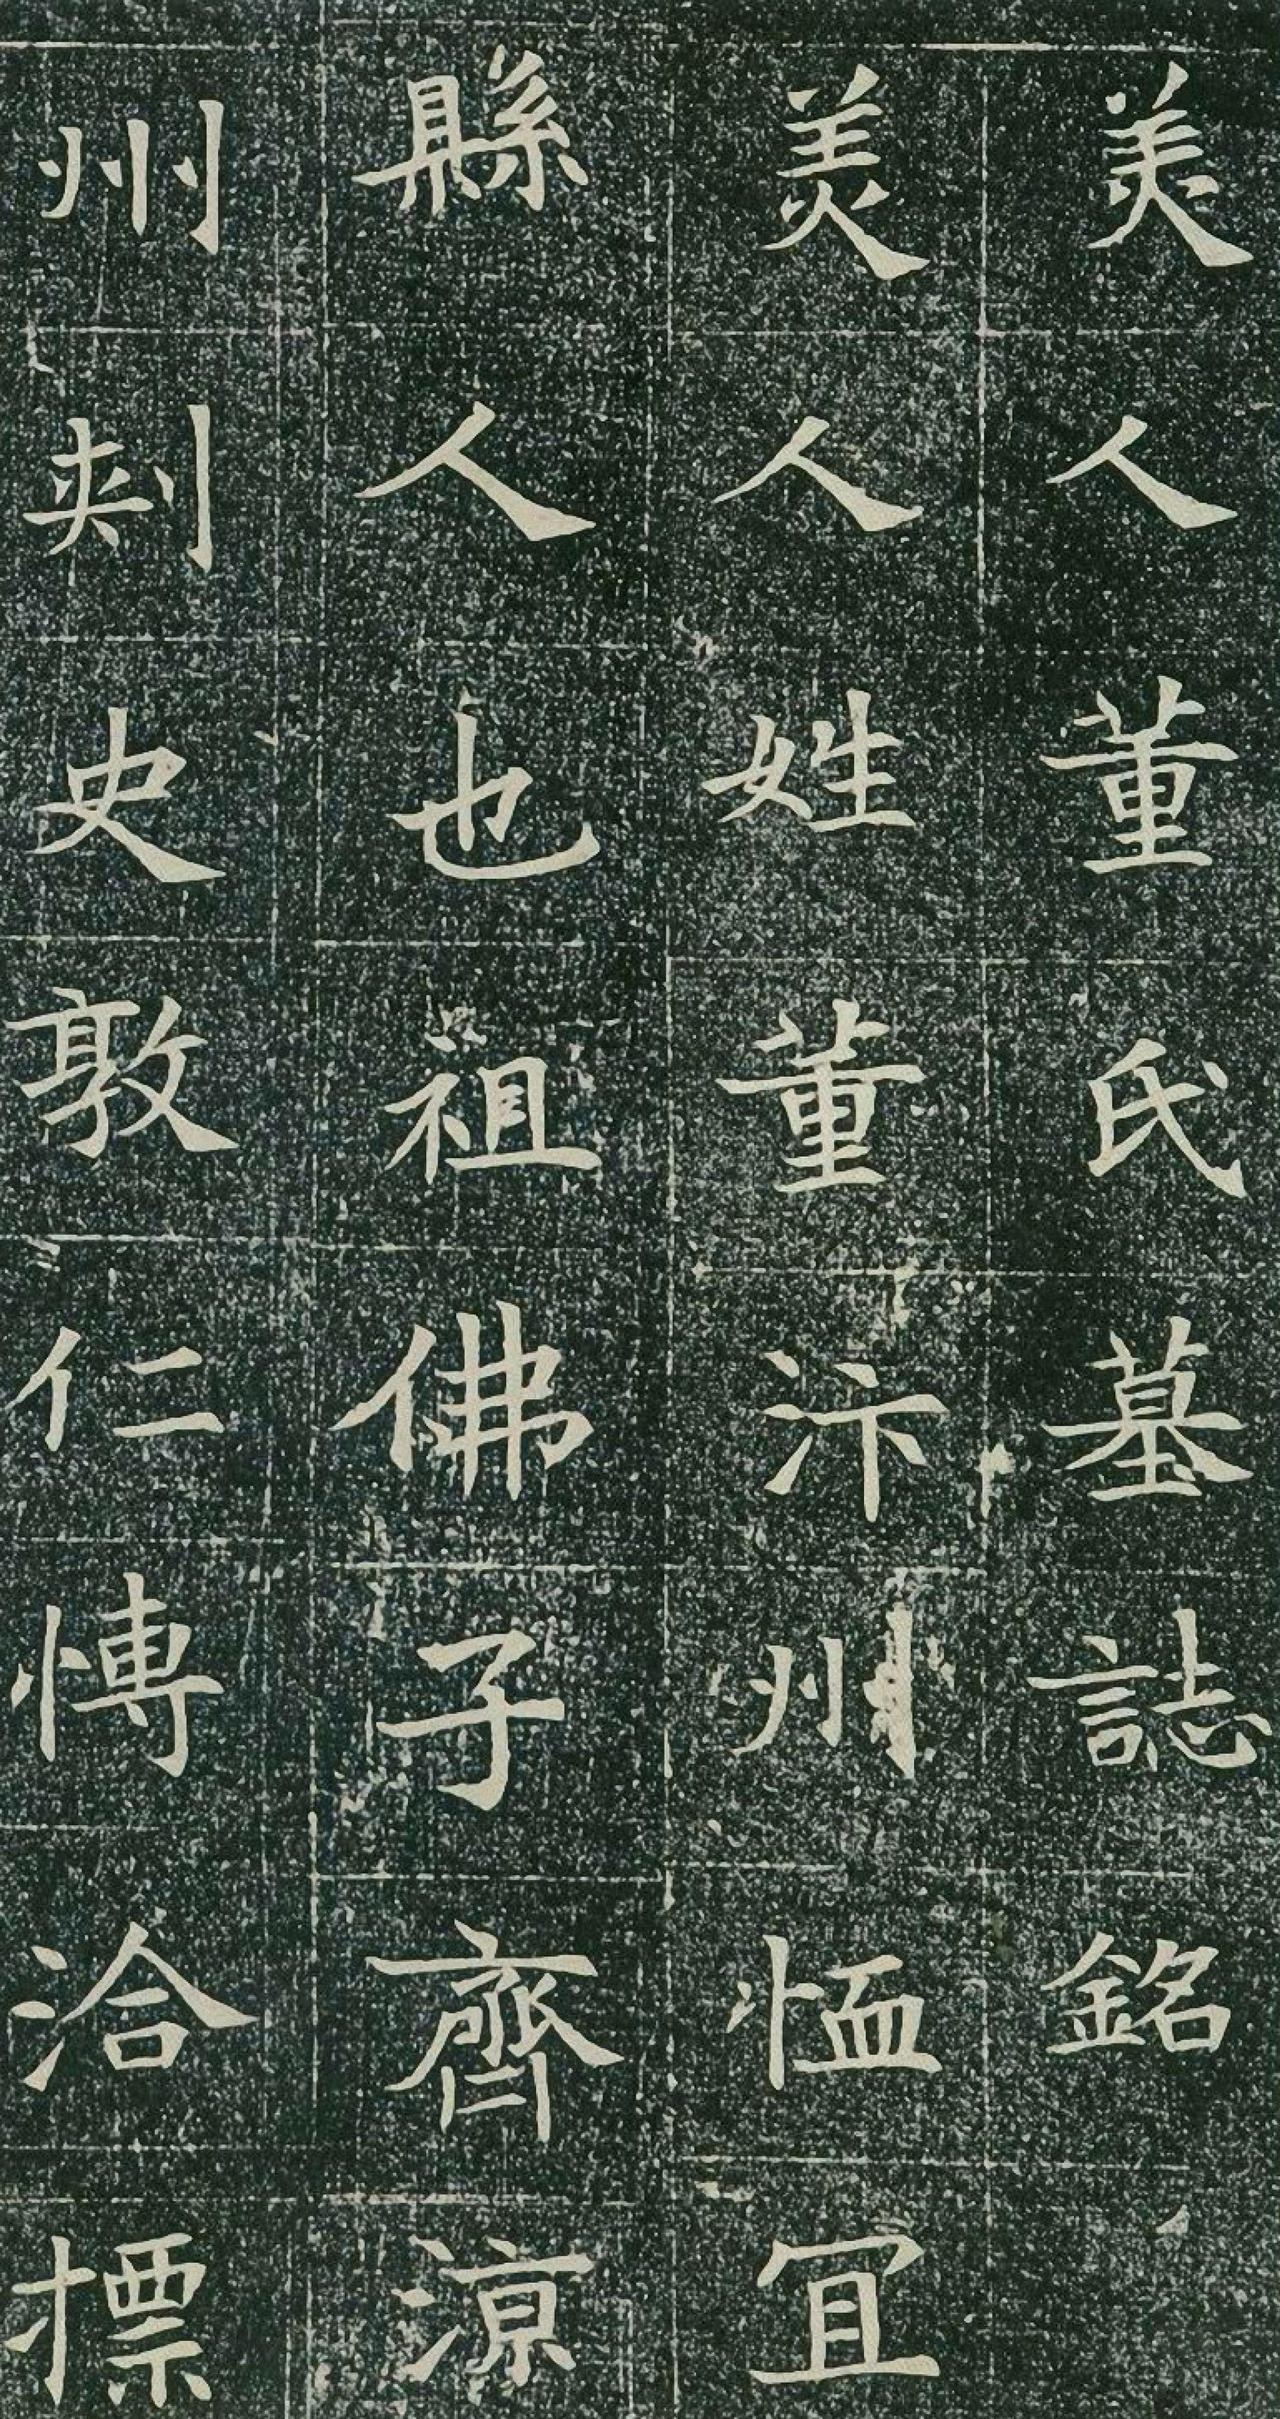 美人董氏墓誌銘
美人姓董汴州恤宜
縣人也祖佛子齊涼
州刺史敦仁慱洽摽